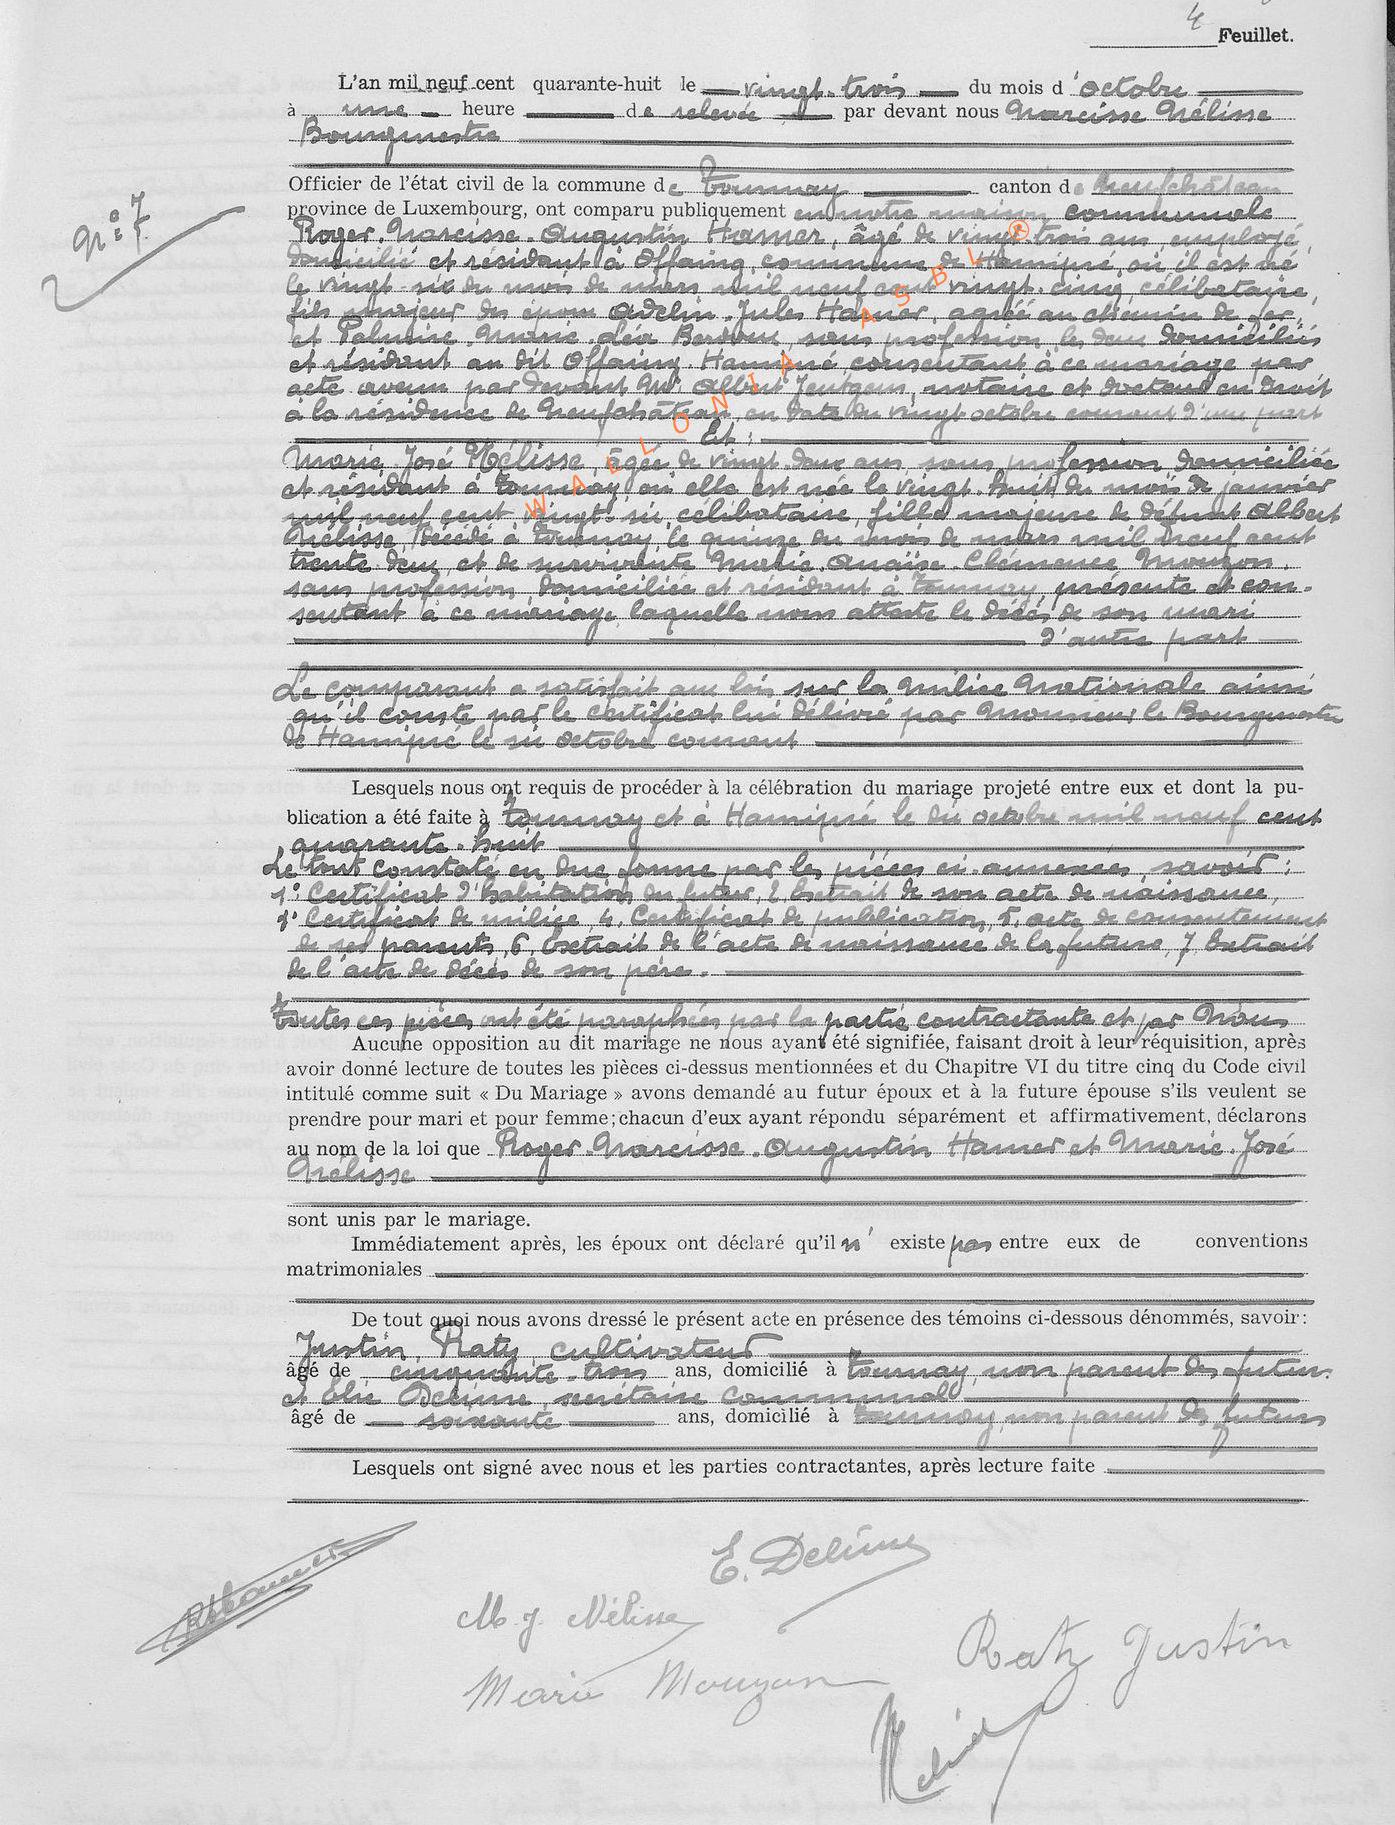 4 Feuillet.
L'an mil neuf cent quarante-huit le vingt-trois du mois d'octobre
à une heure de relevée par devant nous Narcisse Nélisse
Bourgmestre
Officier de l'état civil de la commune de Tournay canton de Neufchâteau
province de Luxembourg, ont comparu publiquement en notre maison communale
N° 7
Roger Narcisse Augustin Hamer, âgé de vingt-trois ans, employé,
domicilié et résidant à Offaing, commune de Hamipré, où il est né
le vingt-six du mois de mars mil neuf cent vingt-cinq, célibataire,
fils majeur des époux Adelin Jules Hamer, agréé au chemin de fer,
et Palmire Marie Léa, sans profession, les deux domiciliés
et résidant au dit Offaing-Hamipré consentant à ce mariage par
acte avenu par devant Mr Albert Jentgen, notaire et docteur en droit
à la résidence de Neufchâteau, en date du vingt octobre courant d'une part
Et :
Marie José Nélisse, âgée de vingt-deux ans, sans profession, domiciliée
et résidant à Tournay, où elle est née le vingt-huit du mois de janvier
mil neuf cent vingt-six, célibataire, fille majeure de défunt Albert
Nélisse, décédé à Tournay, le quinze du mois de mars mil neuf cent
trente deux, et de survivante Marie Anaïse Clémence Mouzon,
sans profession, domiciliée et résidant à Tournay, présente et con-
sentant à ce mariage, laquelle nous atteste le décès de son mari
d'autre part
Le comparant a satisfait aux lois sur la Milice Nationale ainsi
qu'il conste par le certificat lui délivré par Monsieur le Bourgmestre
de Hamipré le six octobre courant
Lesquels nous ont requis de procéder à la célébration du mariage projeté entre eux et dont la pu-
blication a été faite à Tournay et à Hamipré le dix octobre mil neuf cent
quarante-huit
Le tout constaté en due forme par les pièces ci-annexées, savoir :
1° Certificat d'habitation du futur, 2 Extrait de son acte de naissance,
3° Certificat de milice, 4. Certificat de publication, 5. acte de consentement
de ses parents, 6, Extrait de l'acte de naissance de la future, 7 Extrait
de l'acte de décès de son père.
Toutes ces pièces ont été paraphées par la partie contractante et par Nous
Aucune opposition au dit mariage ne nous ayant été signifiée, faisant droit à leur réquisition, après
avoir donné lecture de toutes les pièces ci-dessus mentionnées et du Chapitre VI du titre cinq du Code civil
intitulé comme suit « Du Mariage » avons demandé au futur époux et à la future épouse s'ils veulent se
prendre pour mari et pour femme; chacun d'eux ayant répondu séparément et affirmativement, déclarons
au nom de la loi que Roger Narcisse Augustin Hamer et Marie José
Nélisse
sont unis par le mariage.
Immédiatement après, les époux ont déclaré qu'il n'existe pas entre eux de conventions
matrimoniales
De tout quoi nous avons dressé le présent acte en présence des témoins ci-dessous dénommés, savoir:
Justin Raty, cultivateur
âgé de cinquante-trois ans, domicilié à Tournay, non parent des futurs
et Elie Deleuse, secrétaire communal
âgé de soixante ans, domicilié à Tournay, non parent des futurs
Lesquels ont signé avec nous et les parties contractantes, après lecture faite
RHamer
M. J. Nélisse
Marie Mouzon
Raty Justin
Nélisse
WALLONIA ASBL ®